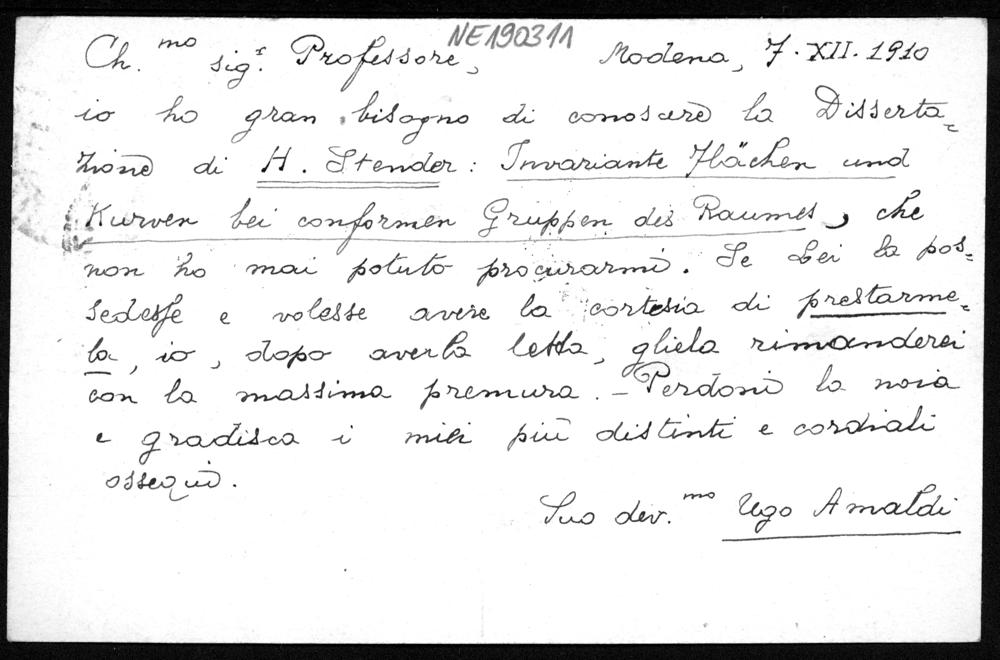 NE190311
Ch.mo sig.r Professore, Modena, 7.XII.1910
io ho gran bisogno di conoscere la Disserta=
zione di H. Stender: Invariante Flächen und
Kurven bei conformen Gruppen des Raumes, che
non ho mai potuto procurarmi. Se Lei la pos=
sedesse e volesse avere la cortesia di prestarme=
la, io, dopo averla letta, gliela rimanderei
con la massima premura. – Perdoni la noia
e gradisca i miei più distinti e cordiali
ossequi.
Suo dev.mo Ugo Amaldi